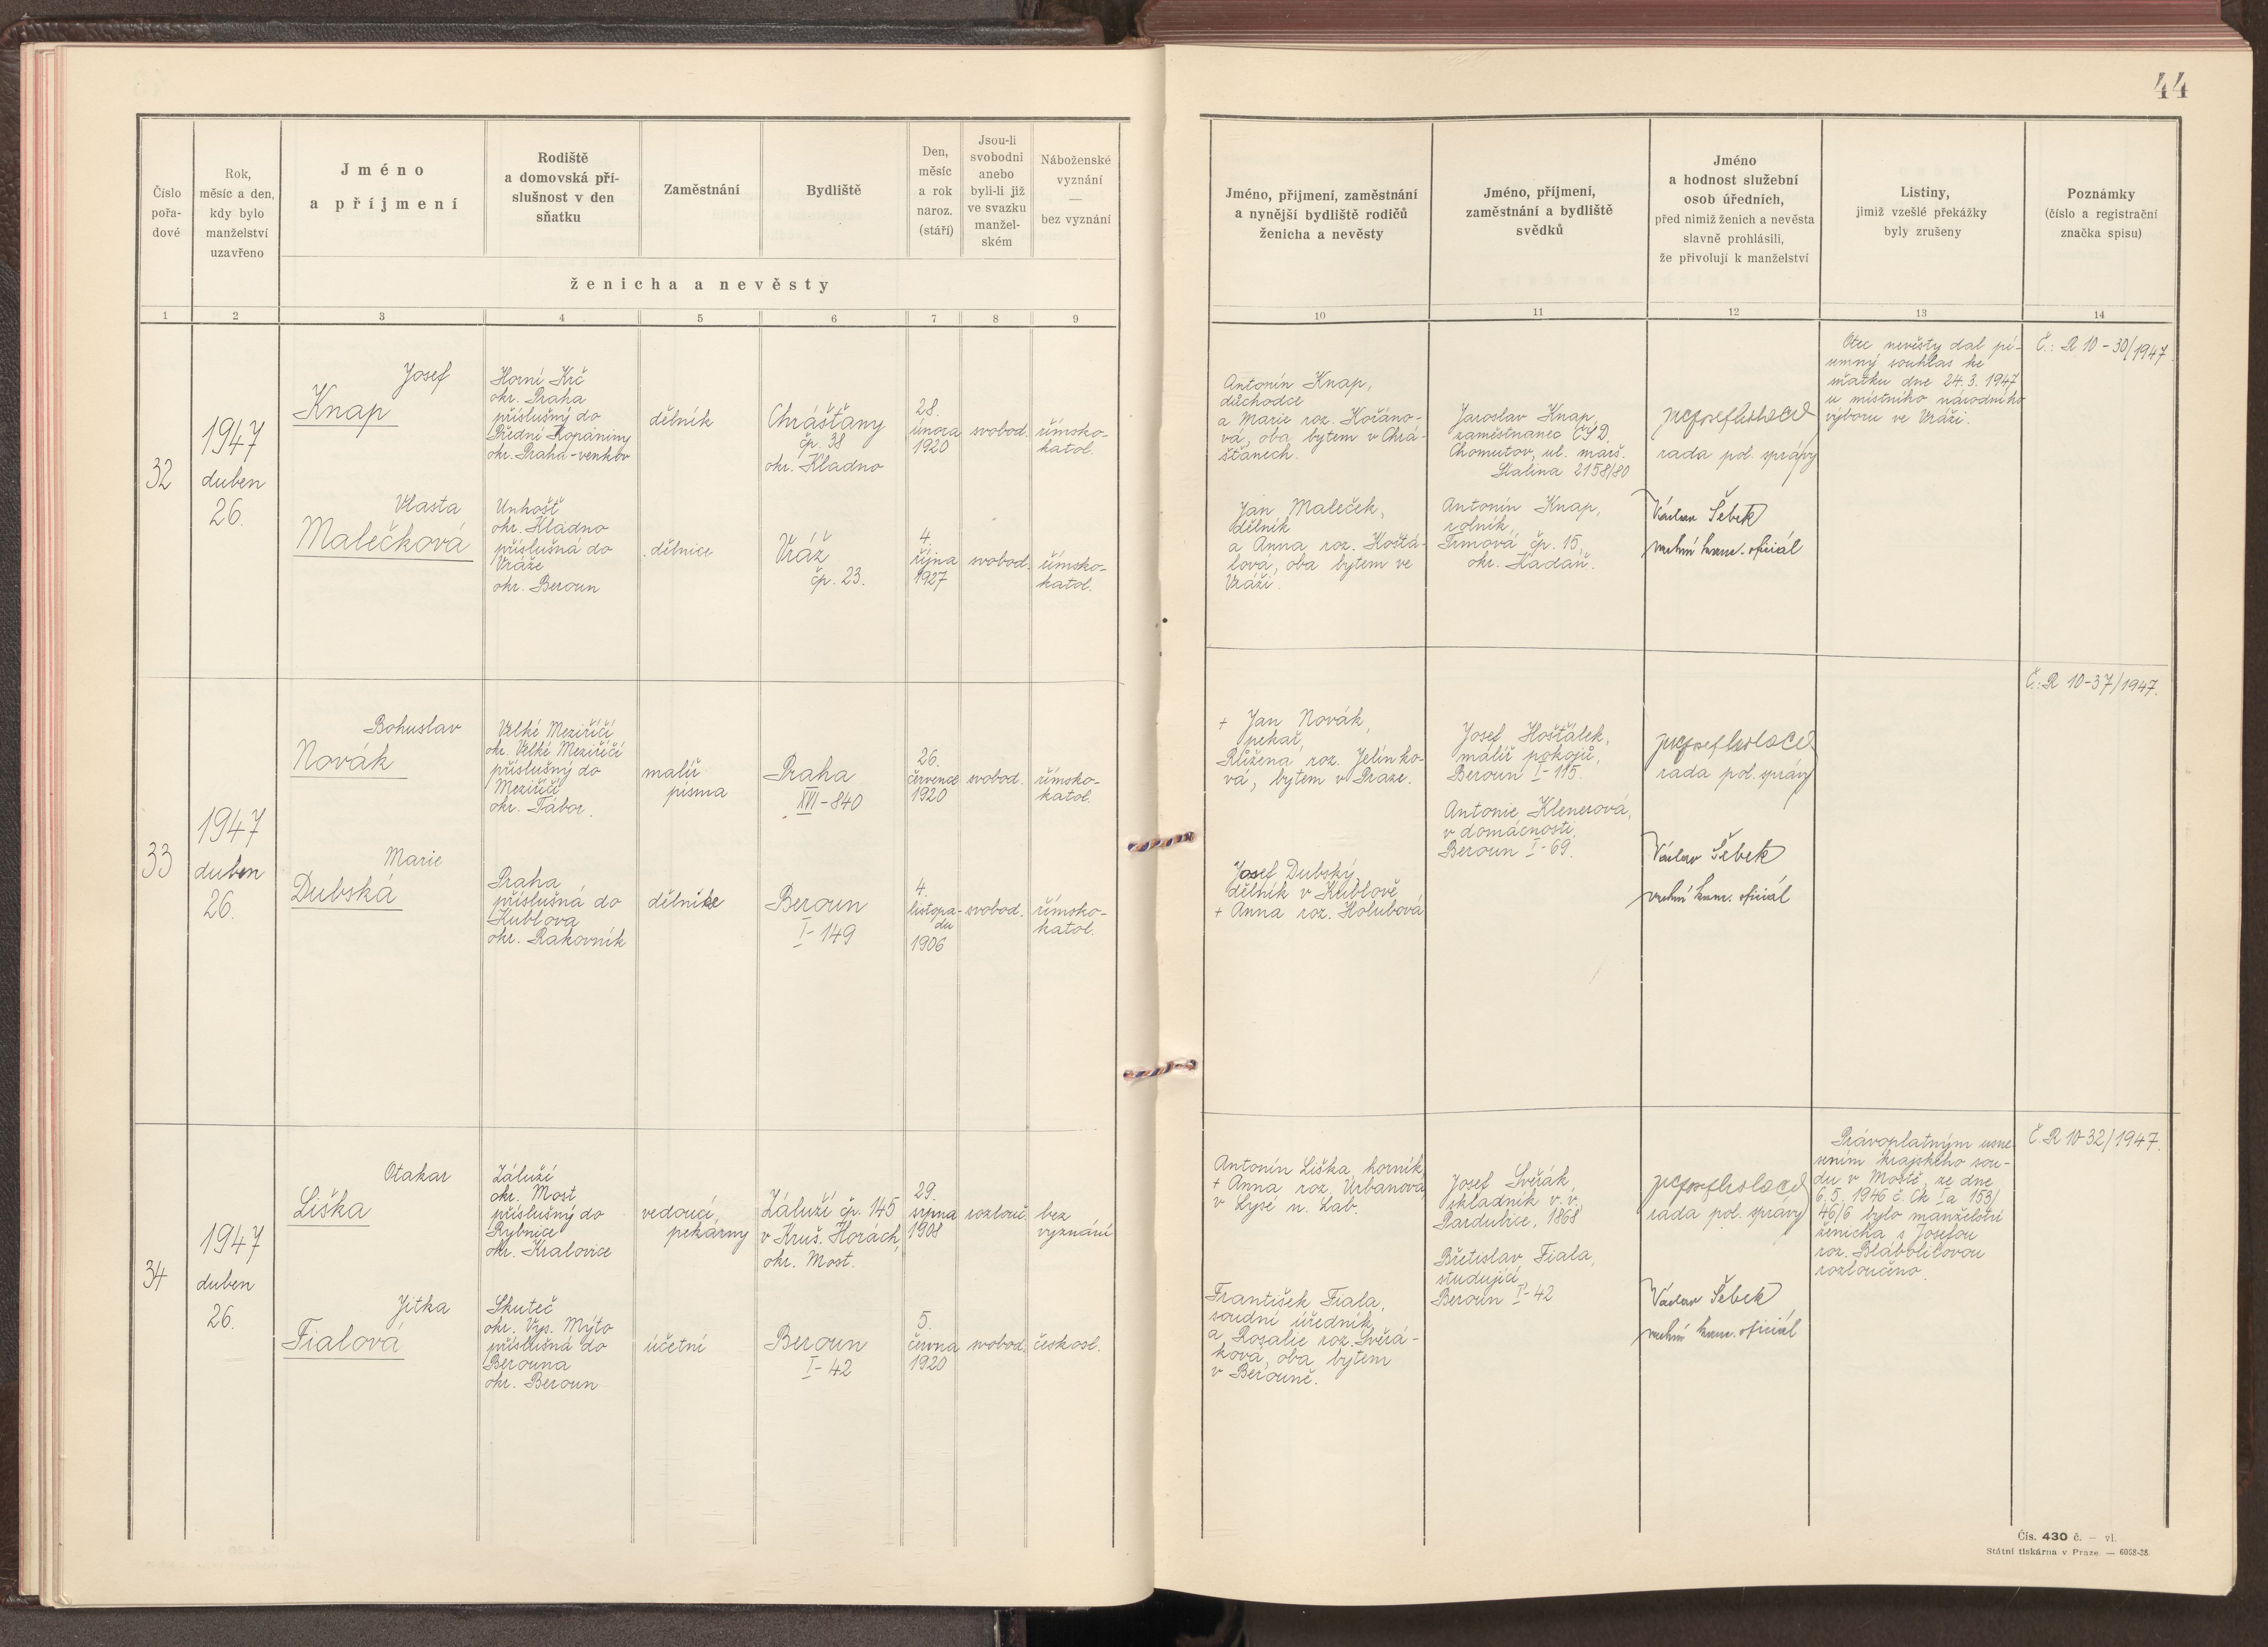 44
Číslo
pořa-
dové
Rok,
měsíc a den,
kdy bylo
manželství
uzavřeno
Jméno
a příjmení
Rodiště
a domovská pří-
slušnost v den
sňatku
Zaměstnání
Bydliště
Den,
měsíc
a rok
naroz.
(stáří)
Jsou-li
svobodni
anebo
byli-li již
ve svazku
manžel-
ském
Náboženské
vyznání
—
bez vyznání
ženicha a nevěsty
Jméno, přijmení, zaměstnání
a nynější bydliště rodičů
ženicha a nevěsty
Jméno, příjmení,
zaměstnání a bydliště
svědků
Jméno
a hodnost služební
osob úředních,
před nimiž ženich a nevěsta
slavně prohlásili,
že přivolují k manželství
Listiny,
jimiž vzešlé překážky
byly zrušeny
Poznámky
(číslo a registrační
značka spisu)
1 2 3 4 5 6 7 8 9 10 11 12 13 14
32
1947
duben
26.
Josef
Knap
Horní Krč
okr. Praha
příslušný do
Přední Kopaniny
okr. Praha-venkov
dělník
Chrášťany
čp. 38
okr. Kladno
28.
února
1920
svobod.
římsko-
katol.
Vlasta
Malečková
Unhošť
okr. Kladno
příslušná do
Vráže
okr. Beroun
dělnice
Vráž
čp. 23.
4.
října
1927
svobod.
římsko-
katol.
Antonín Knap,
důchodce
a Marie roz. Kořáno-
vá, oba bytem v Chrá-
šťanech.
Jan Maleček,
dělník
a Anna roz. Hoštá-
lová, oba bytem ve
Vráži.
Jaroslav Knap,
zaměstnanec ČSD.
Chomutov, ul. marš.
Stalina 2158/80
Antonín Knap,
rolník,
Trmová čp. 15,
okr. Kadaň.
rada pol. správy
Václav Šebek
vrchní kanc. oficiál
Otec nevěsty dal pí-
semný souhlas ke
sňatku dne 24.3.1947
u místního národního
výboru ve Vráži.
Č.: R 10-30/1947.
33
1947
duben
26.
Bohuslav
Novák
Velké Meziříčí
okr. Velké Meziříčí
příslušný do
Meziříčí
okr. Tábor.
malíř
písma
Praha
XVI-840
26.
července
1920
svobod.
římsko-
katol.
Marie
Dubská
Praha
příslušná do
Kublova
okr. Rakovník
dělnice
Beroun
I-149
4.
listopa-
du
1906
svobod.
římsko-
katol.
+ Jan Novák,
pekař,
Růžena roz. Jelínko-
vá, bytem v Praze.
Josef Dubský,
dělník v Kublově
+ Anna roz. Holubová
Josef Hošťálek,
malíř pokojů,
Beroun I-115.
Antonie Klenerová,
v domácnosti,
Beroun I-69.
rada pol. správy
Václav Šebek
vrchní kanc. oficiál
Č.: R 10-37/1947.
34
1947
duben
26.
Otakar
Liška
Záluží
okr. Most
příslušný do
Rybnice
okr. Kralovice
vedoucí
pekárny
Záluží čp. 145
v Kruš. Horách,
okr. Most.
29.
srpna
1908
rozlouč.
bez
vyznání
Jitka
Fialová
Skuteč
okr. Vys. Mýto
příslušná do
Berouna
okr. Beroun
účetní
Beroun
I-42
5.
června
1920
svobod.
českosl.
Antonín Liška, horník
+ Anna roz. Urbanová
v Lysé n. Lab.
František Fiala,
soudní úředník
a Rosalie roz. Svěrá-
ková, oba bytem
v Berouně.
Josef Svěrák,
skladník v.v.,
Pardubice, 1868
Břetislav Fiala,
studující,
Beroun I-42
rada pol. správy
Václav Šebek
vrchní kanc. oficiál
Právoplatným usne-
sením krajského sou-
du v Mostě, ze dne
6.5.1946 č. Ck Ia 153/
46/6 bylo manželství
ženicha s Josefou
roz. Blábolilovou
rozloučeno.
Č. R 10-32/1947.
Čís. 430 č. — vl.
Státní tiskárna v Praze. — 6068-38.